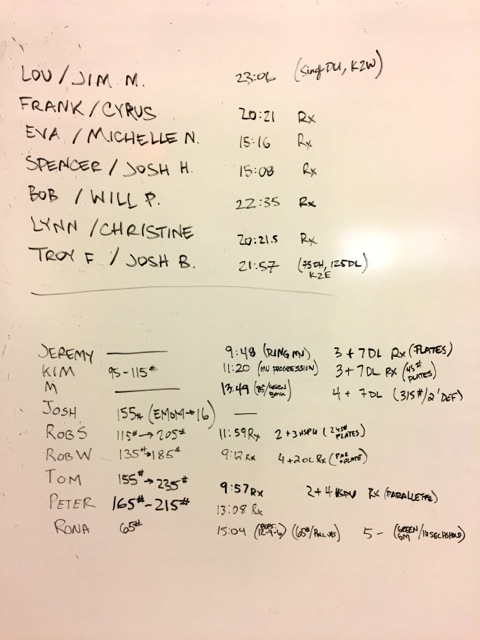 LOU / JIM M. 23:02 (Sing DU, K2W)
FRANK / CYRUS 20:21 Rx
EVA / MICHELLE N. 15:16 Rx
SPENCER / JOSH H. 15:08 Rx
BOB / WILL P. 22:35 Rx
LYNN / CHRISTINE 20:21.5 Rx
TROY F / JOSH B. 21:57 (75OH, 125DL)
K2E
JEREMY 9:48 (RING MU) 3 + 7 DL Rx (PLATES)
KIM 95-115# 11:20 (MU PROGRESSION) 3 + 7 DL Rx (45# PLATES)
M 13:49 4 + 7DL (315#/2" DEF)
JOSH 155# (EMOM → 16) —
ROB S 115# → 205# 11:59 Rx 2 + 3 HSPU PLATES)
ROB W 135# → 185# 9:12 Rx 4 + 2 DL Rx
TOM 155# → 235# 9:57 Rx 2 + 4 Rx (PARALLETTE)
PETER 165# - 215# 13:08 Rx
RONA 65# 15:04 (65#/PULL UPS) 5 - (GREEN